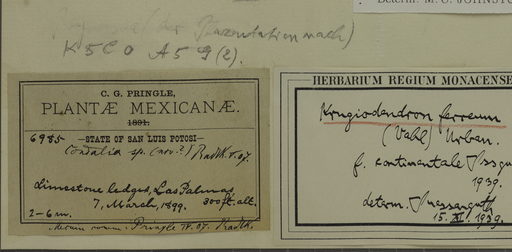 Determ. M. C. JOHNST
(der Placentation nach)
K5 C0 A5 G(2).
C. G. PRINGLE,
PLANTÆ MEXICANÆ.
1891.
6985 —STATE OF SAN LUIS POTOSI—
Condalia sp. (nov.?) Radlk.
Limestone ledges, Las Palmas,
7, March, 1899. 300 ft. alt.
2-6 m.
Pringle
HERBARIUM REGIUM MONACENSE
Krugiodendron ferreum
(Vahl) Urban.
f. continentale
1939.
determ.
15. XI. 1939.